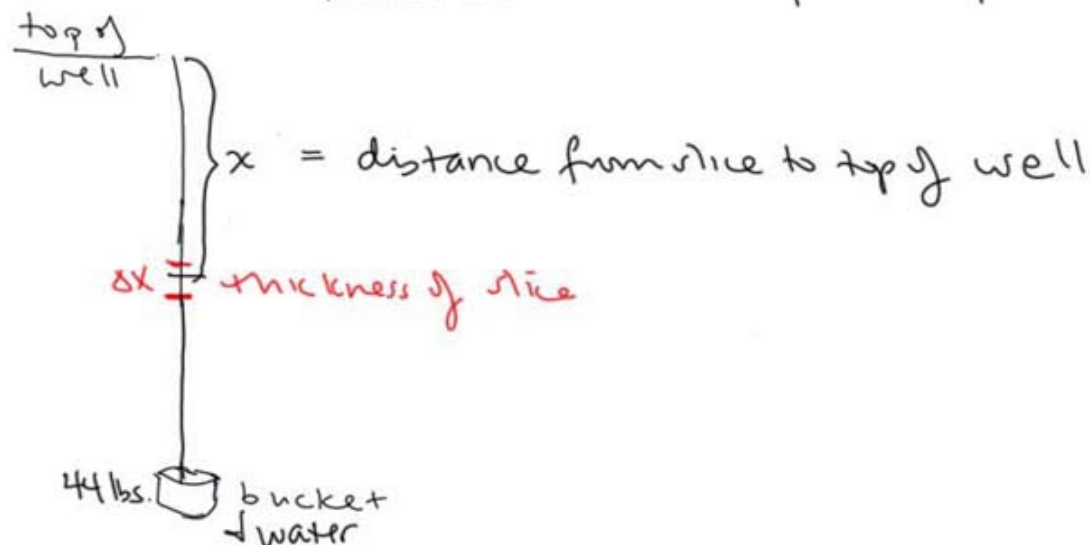 top of
well
x = distance from slice to top of well
Δx thickness of slice
44 lbs. bucket
& water